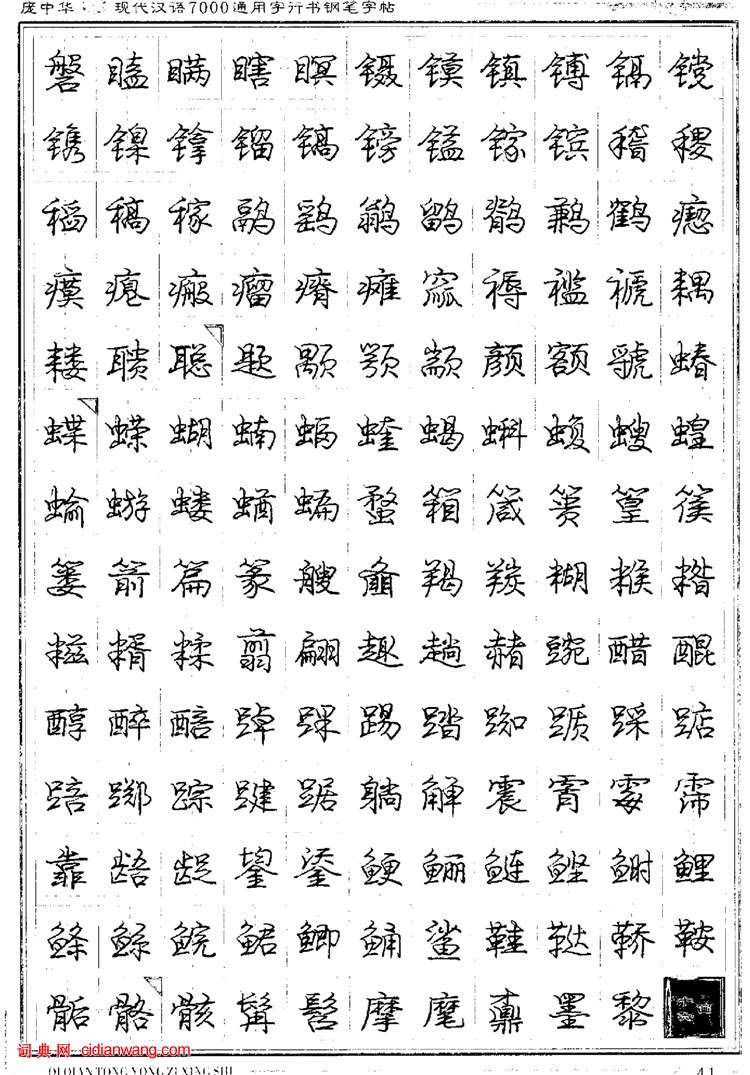 庞中华 现代汉语7000通用字行书钢笔字帖
磐瞌瞒瞎瞑镊镆镇镈镉镋
镌镍镎镏镐镑镒镓镔稽稷
稻稿稼鹝鹞鹟鹠鹡鹣鹤瘛
瘼瘪瘢瘤瘠瘫窳褥褴褫耦
耧聩聪题颙颚颛颜额虢蝽
蝶蝾蝴蝻蝠蝰蝎蝌蝮螋蝗
蝓蝣蝼蝤蝙蝥箱箴篑篁篌
篓箭篇篆艘龠羯羰糊糇糌
糍糈糅翦翩趣趟赭豌醋醌
醇醉醅踔踝踢踏踟踬踩踮
踣踯踪踺踞躺觯震霄霉霈
靠龉龊鋆鋈鲠鲡鲢鲣鲥鲤
鲦鲧鲩鲪鲫鲬鲨鞋鞑鞒鞍
骺骼骸髯髫摩麾麇墨黎
词典网·cidianwang.com
QI QIAN TONG YONG ZI XING SHU
41